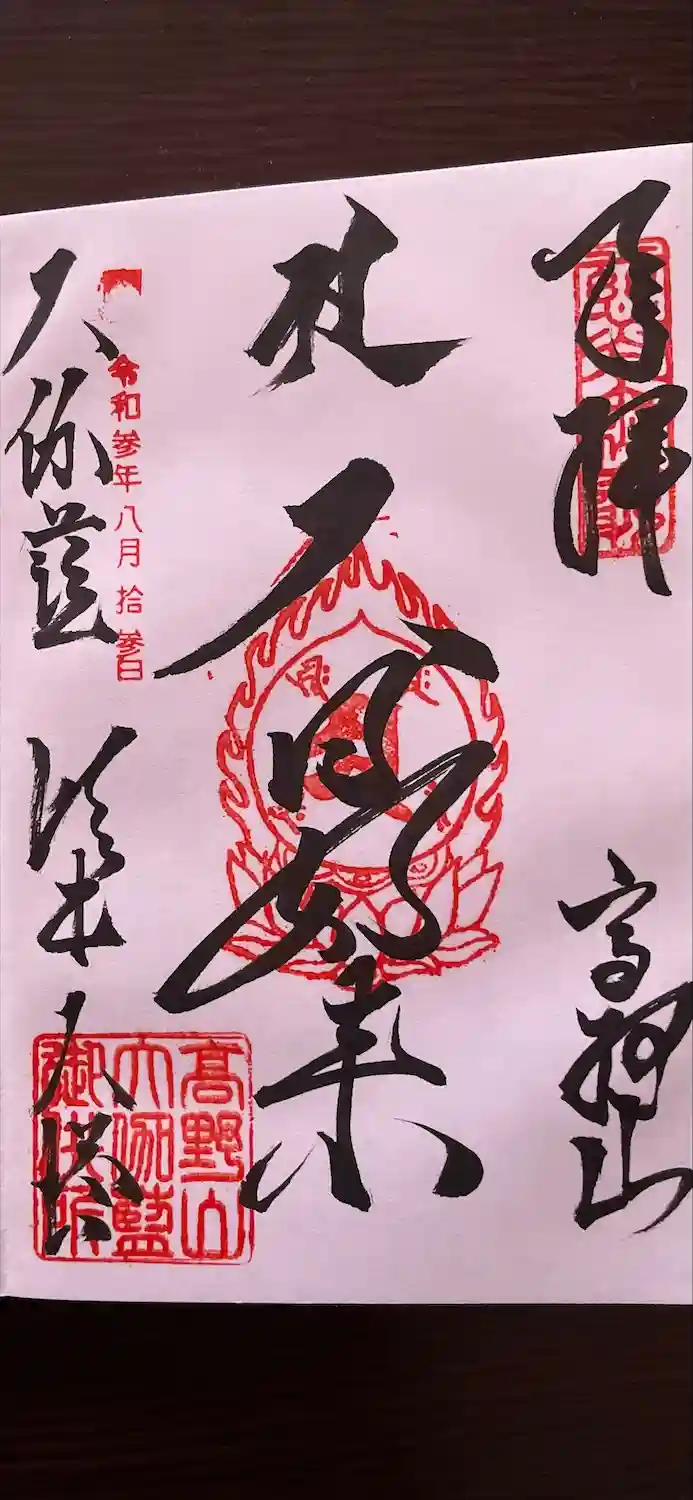 奉拝
高野山
大日如来
令和参年八月拾参日
大伽藍
根本大塔
高野山
大伽藍
御供所